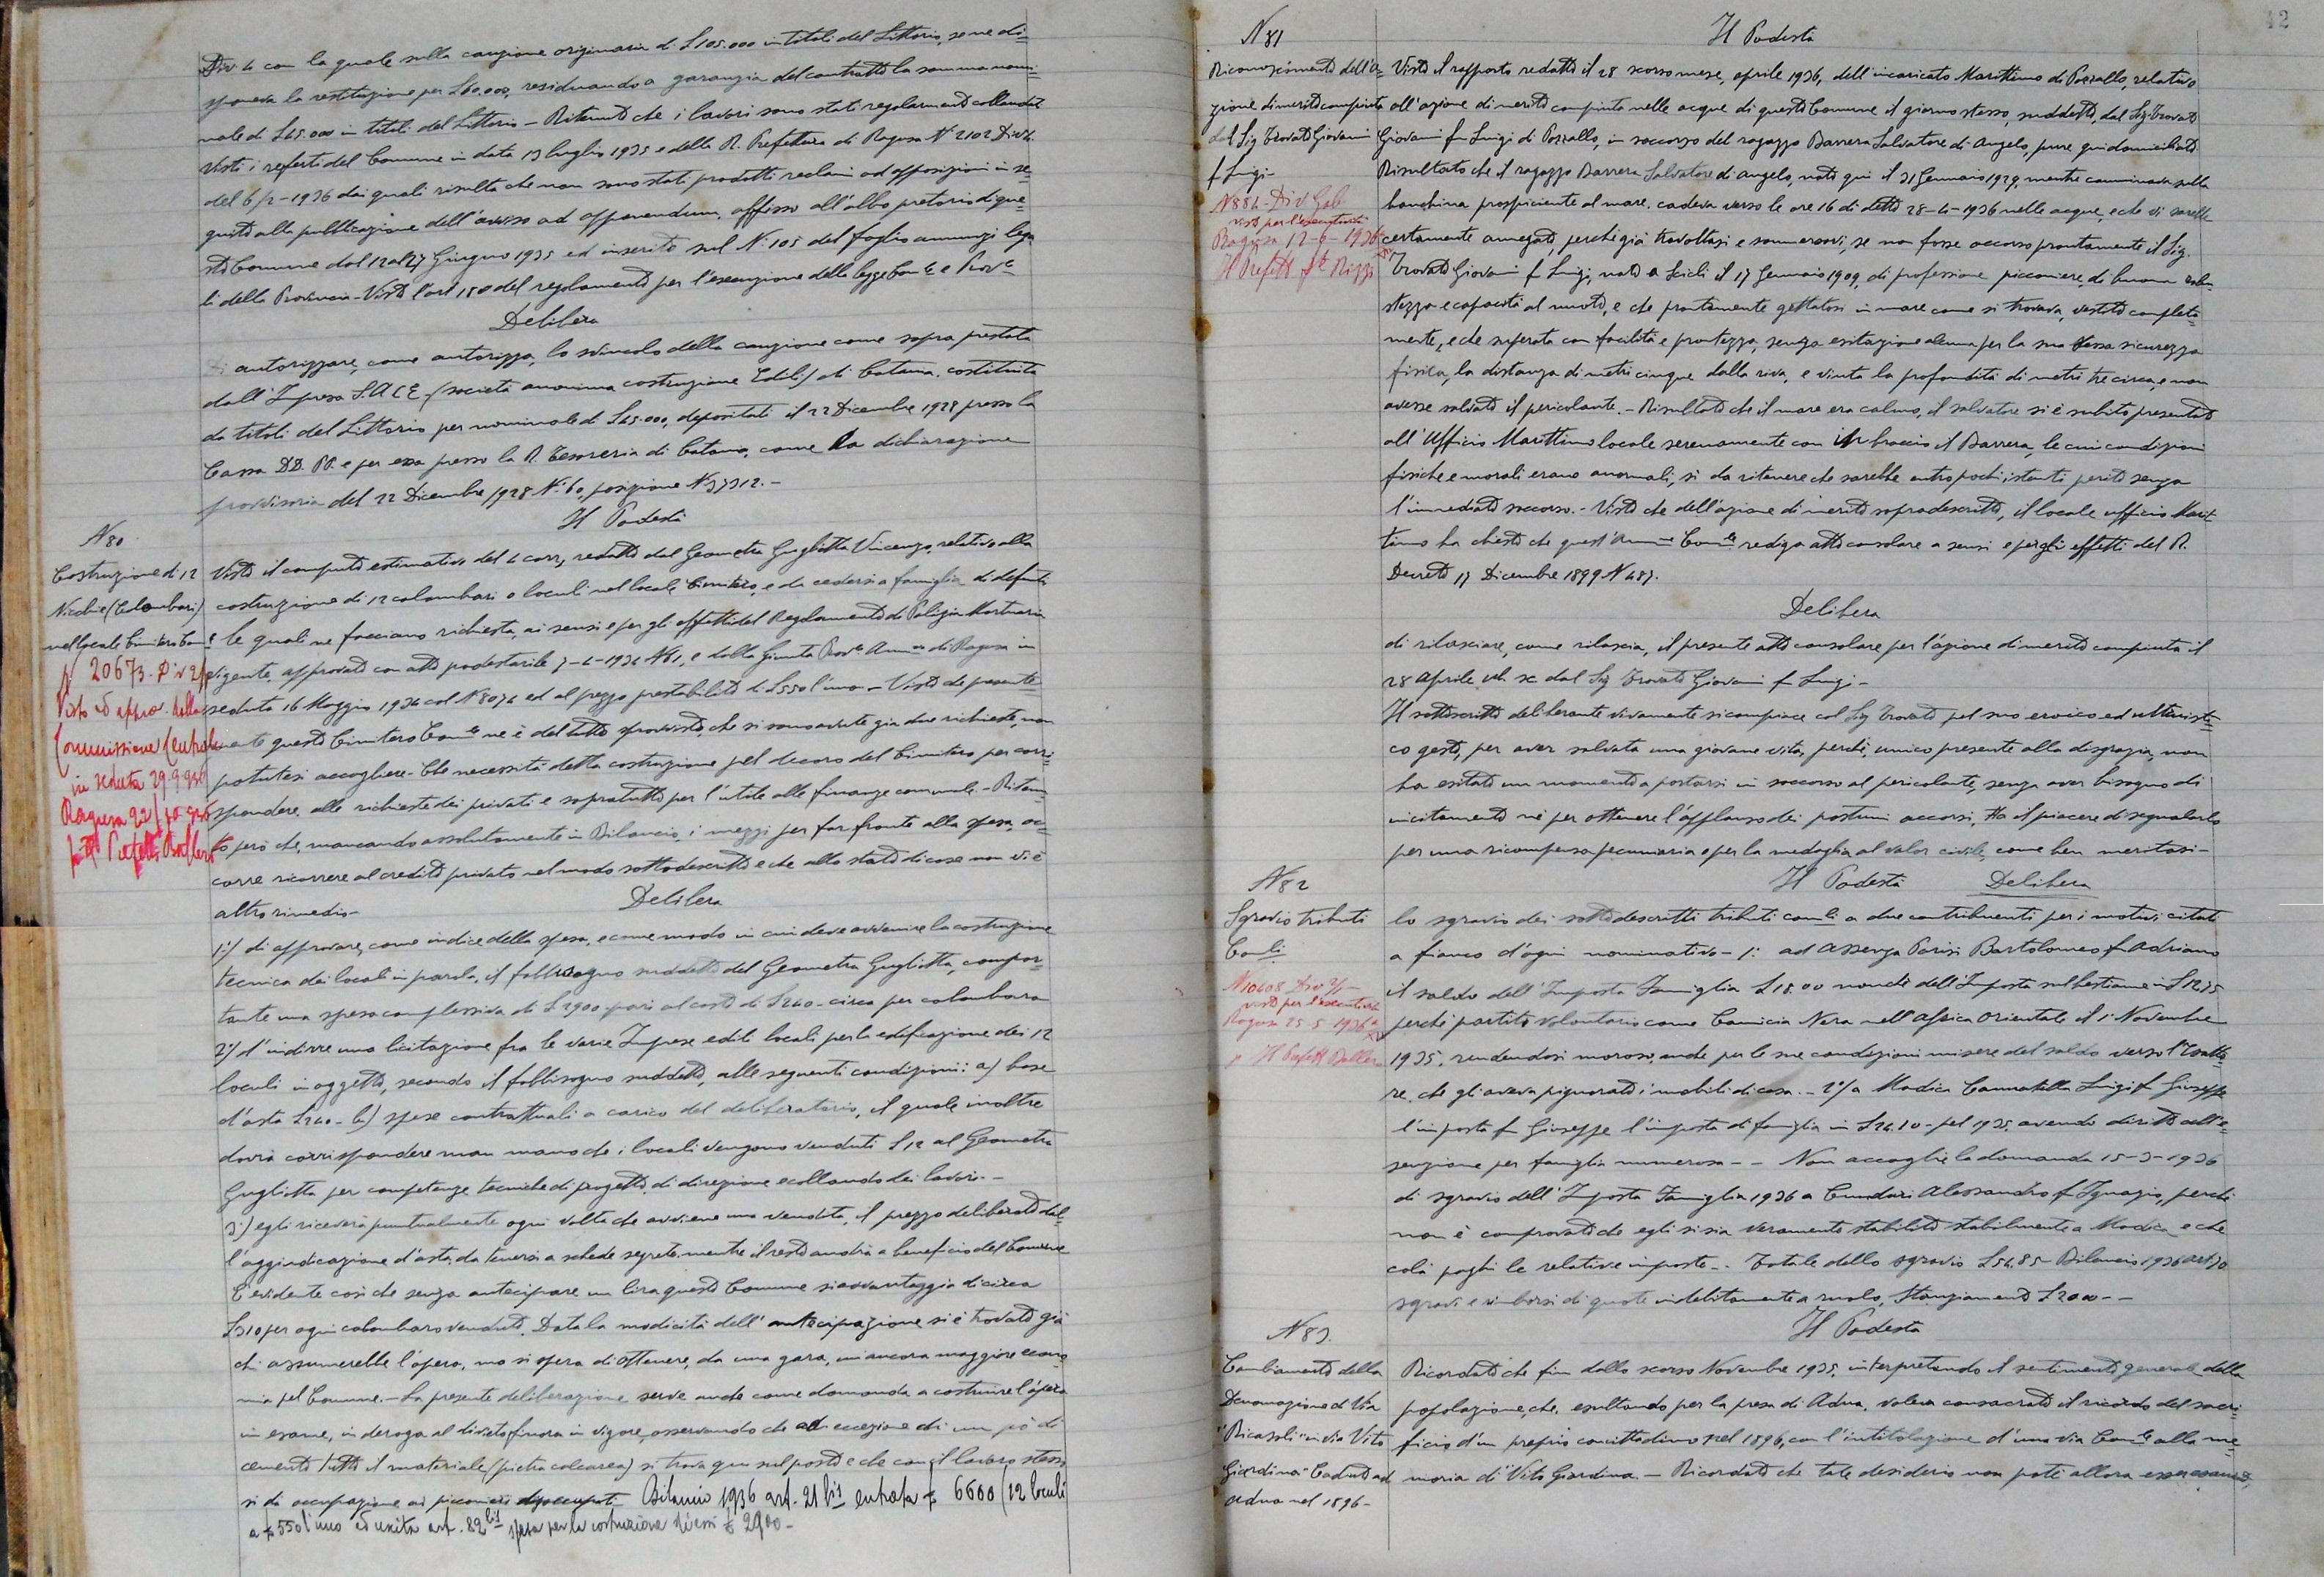 Div 4 con la quale sulla cauzione originaria di £ 105.000 in titoli del Littorio, se ne di=
sponeva la restituzione per £ 60.000, residuando a garanzia del contratto la somma nomi=
nale di £ 45.000 in titoli del Littorio – Ritenuto che i lavori sono stati regolarmente collaudati
Visti i referti del Comune in data 13 luglio 1935 e della R. Prefettura di Ragusa N° 2102 Div 4
del 6/2-1936 dai quali risulta che non sono stati prodotti reclami od opposizioni in se=
guito alla pubblicazione dell'avviso ad opponendum, affisso all'albo pretorio di que=
sto Comune dal 12 al 27 Giugno 1935 ed inserito sul N. 105 del foglio annunzi lega
li della Provincia – Visto l'art 150 del regolamento per l'esecuzione della legge Com.le e Prov.le
Delibera
Di autorizzare, come autorizza, lo svincolo della cauzione come sopra prestata
dall'Impresa S.A.C.E. (società anonima costruzione Edili) di Catania, costituita
da titoli del Littorio per nominale di £ 45.000, depositati il 22 Dicembre 1928 presso la
Cassa DD. PP. e per essa presso la R. Tesoreria di Catania, come da dichiarazione
provvisoria del 22 Dicembre 1928 N. 60, posizione N 37312. –
Il Podestà
N 80
Costruzione di 12
Nicchie (Colombari)
nel locale Cimitero Com.le
N 20673. Div 2/1
Visto ed approv. dalla
Commissione Centrale
in seduta 29.9.936
Ragusa 22/10 936
Prefetto Ballero
Visto il computo estimativo del 4 corr, redatto dal Geometra Gugliotta Vincenzo, relativo alla
costruzione di 12 colombari o loculi nel locale Cimitero, e da cedersi a famiglia di defunti
le quali ne facciano richiesta, ai sensi e per gli effetti del Regolamento di Polizia Mortuaria
vigente, approvato con atto podestarile 7-4-1934 N 61, e dalla Giunta Prov.le Amm.va di Ragusa in
seduta 16 Maggio 1934 col N 8074 ed al prezzo prestabilito di £ 550 l'uno – Visto che presente=
mente questo Cimitero Com.le ne è del tutto sprovvisto, che si sono avute già due richieste, non
potutesi accogliere – Che necessita detta costruzione pel decoro del Cimitero, per corri=
spondere alle richieste dei privati e sopratutto per l'utile alle finanze comunali – Ritenu=
to però che, mancando assolutamente in Bilancio, i mezzi per far fronte alla spesa, oc=
corre ricorrere al credito privato nel modo sottodescritto e che allo stato di cose non vi è
altro rimedio –
Delibera
1°) di approvare, come indice della spesa, e come modo in cui deve avvenire la costruzione
tecnica dei locali in parola, il fabbisogno suddetto del Geometra Gugliotta, compor=
tante una spesa complessiva di £ 2900 – pari al costo di £ 240 – circa per colombaro
2°) d'indirre una licitazione fra le varie Imprese edili locali per la edificazione dei 12
loculi in oggetto, secondo il fabbisogno suddetto, alle seguenti condizioni: a) base
d'asta £ 240 – b) spese contrattuali a carico del deliberatario, il quale inoltre
dovrà corrispondere man mano che i locali vengono venduti £ 12 al Geometra
Gugliotta per competenze tecniche di progetto, di direzione e collaudo dei lavori. –
3°) egli riceverà puntualmente ogni volta che avviene una vendita, il prezzo deliberato dal=
l'aggiudicazione d'asta, da tenersi a schede segrete, mentre il resto andrà a beneficio del Comune
È evidente così che senza antecipare un lira questo Comune si avvantaggia di circa
£ 310 per ogni colombaro venduto. Data la modicità dell'antecipazione si è trovato già
chi assumerebbe l'opera, ma si spera di ottenere, da una gara, un'ancora maggiore econo
mia pel Comune. – La presente deliberazione serve anche come domanda a costruire l'opera
in esame, in deroga al divieto finora in vigore, osservando che ad eccezione di un pò di
cemento tutto il materiale (pietra calcarea) si trova qui sul posto e che con il lavoro stesso
si dà occupazione ai picconieri disoccupati – Bilancio 1936 art. 21 bis entrata £ 6600 (12 loculi
a £ 550 l'uno ed uscita art. 82 bis spesa per la costruzione di essi £ 2900 –
42
N 81
Riconoscimento dell'a=
zione di merito compiuta
dal Sig Trovato Giovanni
f Luigi –
N 884 – Div Gab
visto per l'esecutività
Ragusa 12-6-1936
Il Prefetto f.to Rizzi
Il Podestà
Visto il rapporto redatto il 28 scorso mese, aprile 1936, dell'incaricato Marittimo di Pozzallo, relativo
all'azione di merito compiuta nelle acque di questo Comune il giorno stesso, suddetto, dal Sig Trovato
Giovanni fu Luigi di Pozzallo, in soccorso del ragazzo Barrera Salvatore di Angelo, pure qui domiciliato
Risultato che il ragazzo Barrera Salvatore di Angelo, nato qui il 31 Gennaio 1929, mentre camminava sulla
banchina prospiciente al mare, cadeva verso le ore 16 di detto 28-4-1936 nelle acque, e che vi sarebbe
certamente annegato, perchè già travoltosi e sommersovi, se non fosse accorso prontamente il Sig.
Trovato Giovanni f Luigi, nato a Scicli il 17 Gennaio 1909, di professione picconiere, di buona robu=
stezza e capacità al nuoto, e che prontamente gettatosi in mare come si trovava, vestito completa=
mente, e che superata con facilità e prontezza, senza esitazione alcuna per la sua stessa sicurezza
fisica, la distanza di metri cinque dalla riva, e vinta la profondità di metri tre circa, e non
avesse salvato il pericolante. – Risultato che il mare era calmo, il salvatore si è subito presentato
all'Ufficio Marittimo locale serenamente con in braccio il Barrera, le cui condizioni
fisiche e morali erano anormali, sì da ritenere che sarebbe entro pochi istanti perito senza
l'immediato soccorso. – Visto che dell'azione di merito sopradescritta, il locale ufficio Marit
timo ha chiesto che quest'Amm.ne Com.le rediga atto consolare a sensi e per gli effetti del R.
Decreto 17 Dicembre 1899 N 487.
Delibera
di rilasciare, come rilascia, il presente atto consolare per l'azione di merito compiuta il
28 aprile u. sc dal Sig Trovato Giovanni f Luigi –
Il sottoscritto deliberante vivamente si compiace col Sig Trovato pel suo eroico ed altruisti=
co gesto, per aver salvata una giovane vita, perchè, unico presente alla disgrazia, non
ha esitato un momento a portarsi in soccorso al pericolante, senza aver bisogno di
incitamento nè per ottenere l'applauso dei postumi accorsi. Ha il piacere di segnalarlo
per una ricompensa pecuniaria e per la medaglia al valor civile, come ben meritasi –
N 82
Sgravio tributi
Com.li
N 10408 Div 2/1 –
visto per l'esecutività
Ragusa 25-5 1936
p Il Prefetto Ballero
Il Podestà Delibera
lo sgravio dei sottodescritti tributi com.li a due contribuenti per i motivi citati
a fianco d'ogni nominativo – 1: ad Assenza Parisi Bartolomeo f Adriano
il saldo dell'Imposta Famiglia £ 18.00 nonchè dell'Imposta sul bestiame in £ 12,75
perchè partito volontario come Camicia Nera nell'Africa Orientale il 1 Novembre
1935, rendendosi moroso, anche per le sue condizioni misere del saldo verso l'Esatto=
re, che gli aveva pignorato i mobili di casa. – 2°) a Modica Cannatella Luigi f Giuseppe
l'imposta f Giuseppe l'imposta di famiglia in £ 24.10 – pel 1935, avendo diritto all'e=
senzione per famiglia numerosa – – Non accoglie la domanda 15-3-1936
di sgravio dell'Imposta Famiglia 1936 a Cundari Alessandro f Ignazio, perchè
non è comprovato che egli si sia veramente stabilito stabilmente a Modica, e che
colà paghi le relative imposte – . Totale dello sgravio £ 54,85 – Bilancio 1936 art 30
sgravi e rimborsi di quote indebitamente a ruolo, Stanziamento £ 2000 – –
N 83.
Cambiamento della
Denomazione di Via
"Ricasoli" in via Vito
Giardina" Caduto ad
adua nel 1896 –
Il Podestà
Ricordato che fin dallo scorso Novembre 1935, interpretando il sentimento generale della
popolazione, che, esultando per la presa di Adua, voleva consacrato il ricordo del sacri=
ficio d'un proprio concittadino nel 1896, con l'intitolazione d'una via Com.le alla me=
moria di Vito Giardina. – Ricordato che tale desiderio non potè allora esser esaudito,